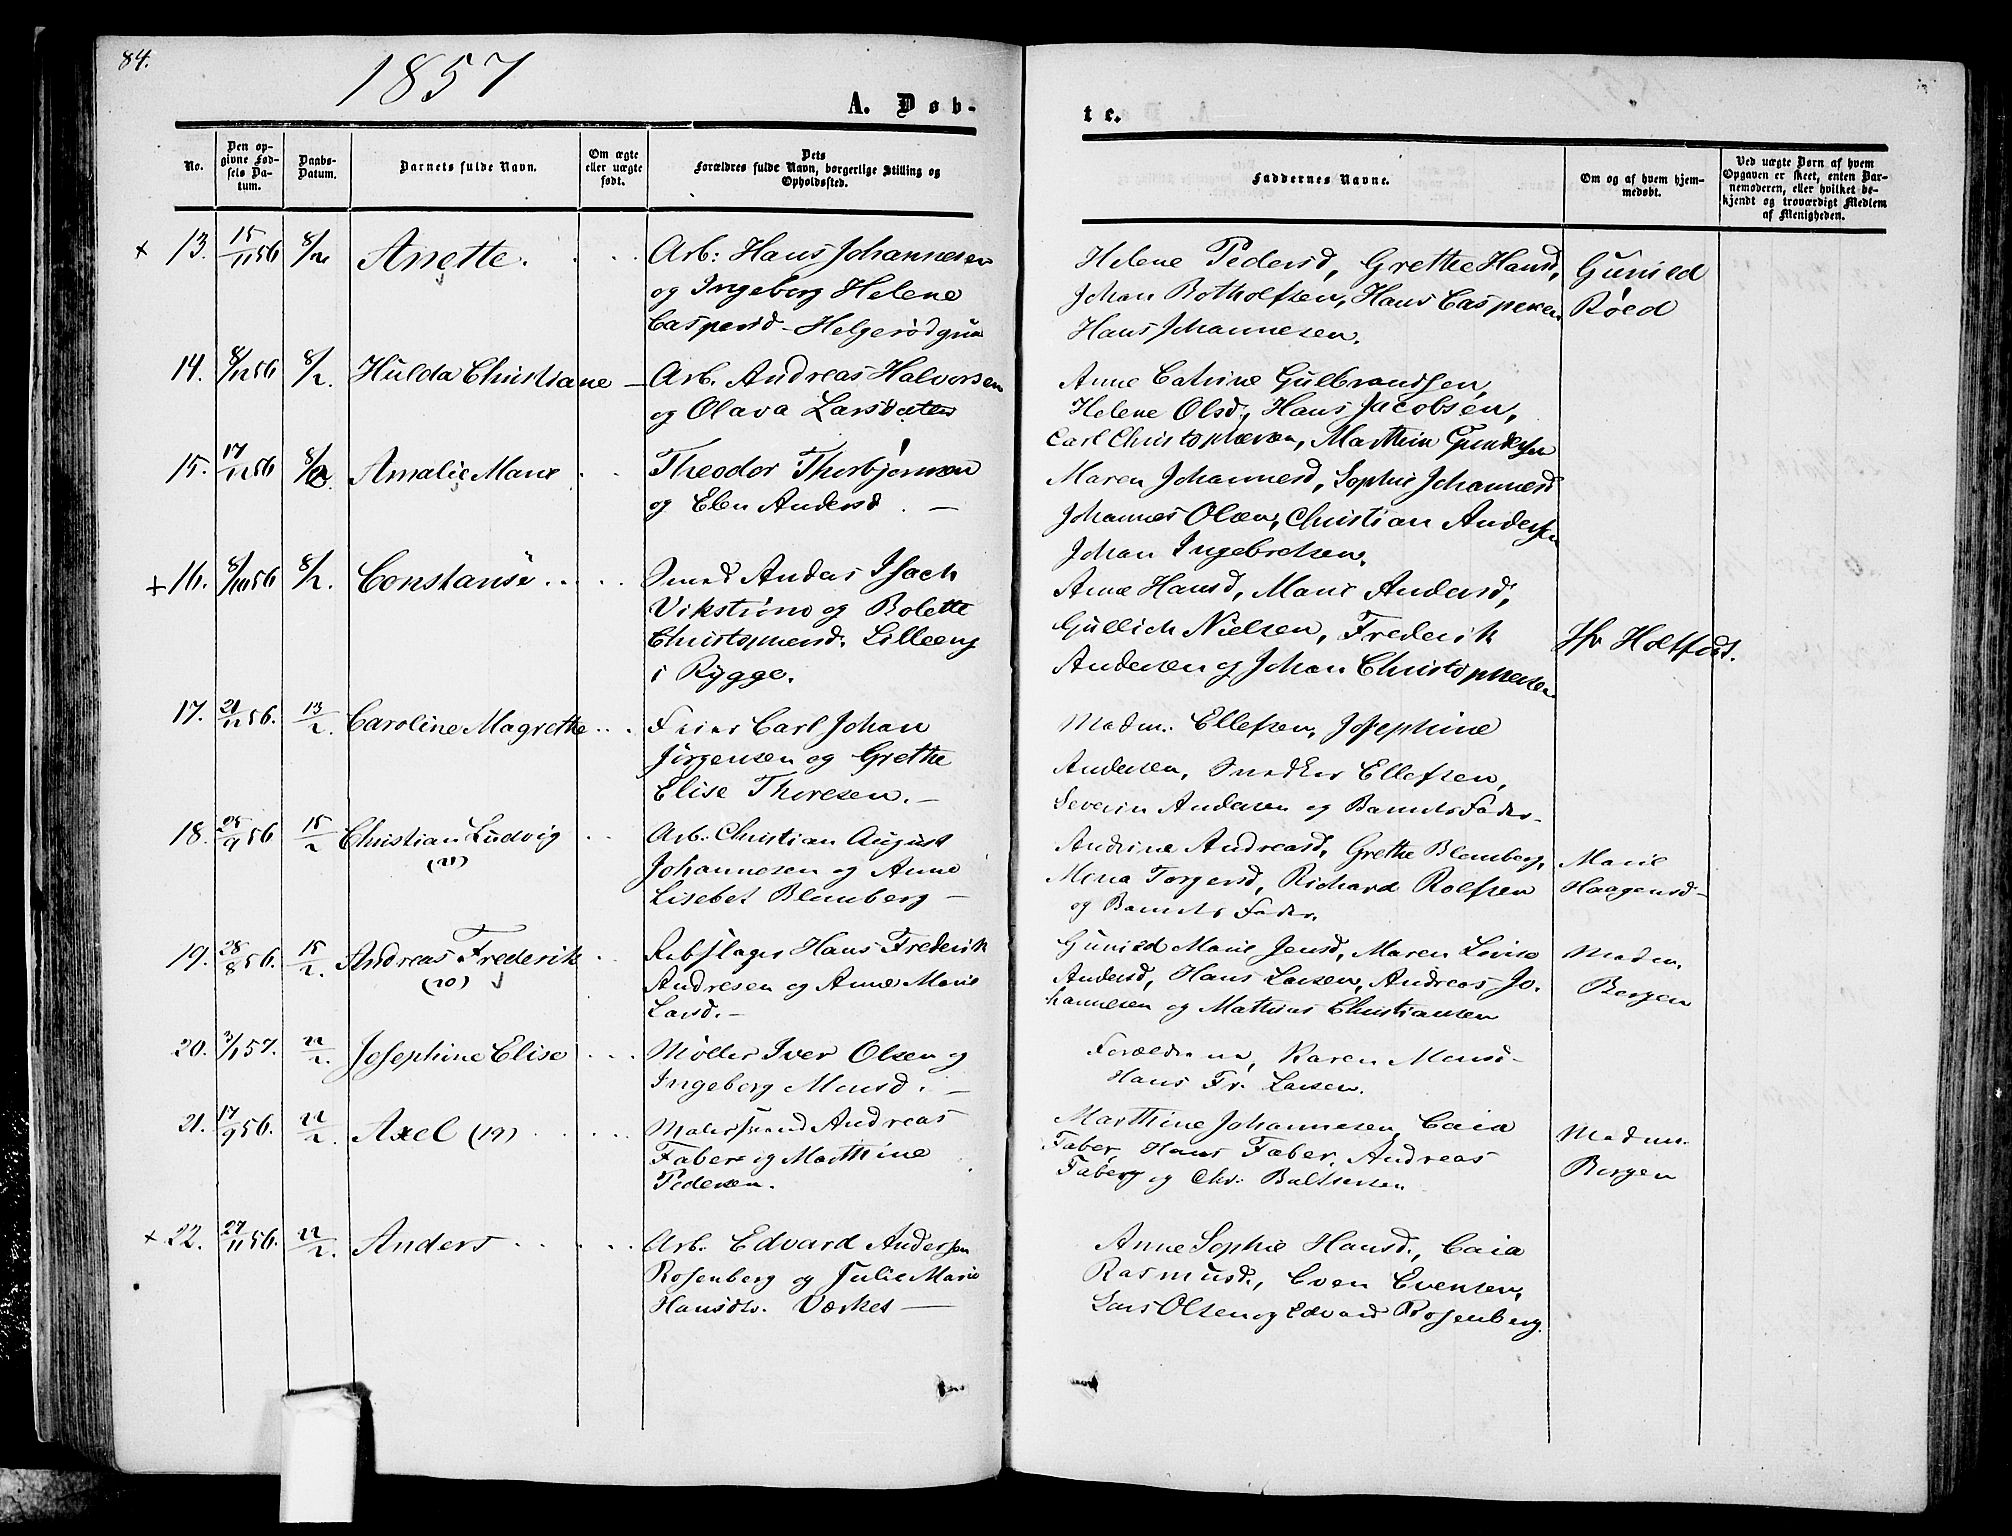 84.
1857
A. Døb-
te.
No.
Den op-
givne Fød-
sels Da-
tum.
Daabs-
Datum.
Barnets fulde Navn.
Om ægte
eller uægte
født.
Dets
Forældres fulde Navn, borgerlige Stilling og
Opholdssted.
Faddernes Navne.
Om og af hvem hjem-
medøbt.
Ved uægte Børn af hvem
Opgaven er skeet, enten Bar-
nemoderen, eller hvilket be-
kjendt og troværdigt Medlem
af Menigheden.
+ 13. 15/11 56 8/2 Anette. Arb: Hans Johannesen
og Ingeborg Helene
Caspersd - Helgerød
Helene Pedersd, Grethe Hansd,
Johan Botholfsen, Hans Caspersen
Hans Johannesen.
Gunild
Røed
14. 8/12 56 8/2. Hulda Christiane - Arb. Andreas Halvorsen
og Olava Larsdatter
Anne Catrine Gulbrandsen,
Helene Olsd, Hans Jacobsen,
Carl Christophersen, Marthin Gundersen
15. 17/12 56 8/2. Amalie Marie Theodor Thorbjørnsen
og Elen Andersd. -
Maren Johannesd, Sophie Johannesd
Johannes Olsen, Christian Andersen
Johan Ingebretsen.
+ 16. 8/10 56 8/2. Constansi Smed Andas Isach
Vikstrøm og Bolette
Christophersd. Lilleeng
i Rygge.
Anne Hansd, Marie Andersd,
Gullich Nielsen, Frederik
Andersen og Johan Christophersen
Jfr Holtfodt.
17. 21/12 56. 13/2. Caroline Magrethe Carl Johan
Jørgensen og Grethe
Elise Thoresen. -
Madm. Ellefsen, Josephine
Andersen, Snedker Ellefsen,
Severin Andersen og Barnets Fader.
18. 25/9 56 15/2 Christian Ludvig
(21)
Arb. Christian August
Johannesen og Anne
Lisebet Blomberg -
Andrine Andreasd, Grethe Blomberg,
Mina Torgersd, Richard Rolfsen
og Barnets Fader.
Marie
Haagensd-
19. 28/8 56. 15/2. Andreas Frederik
(20)
Rebslager Hans Frederik
Andresen og Anne Marie
Larsd. -
Gunild Marie Jensd, Maren Lovise
Andersd, Hans Larsen, Andreas Jo-
hannesen og Mathias Christiansen
Madm.
Bergen
20. 3/1 57. 22/2. Josephine Elise Møller Iver Olsen og
Ingeborg Monsd. -
Forældrene, Karen Monsd-
Hans Fr. Larsen.
21. 17/9 56. 22/2. Axel (19) Andreas
Faber og Marthine
Pedersen.
Marthine Johannesen, Caia
Faber, Hans Faber, Andreas
Faberg og Chr. Baltsersen
Madm.
Bergen
+ 22. 27/11 56. 22/2. Anders Arb. Edvard Andersen
Rosenberg og Julie Marie
Hansdtr. Værket -
Anne Sophie Hansd., Caia
Rasmusd., Even Evensen,
Lars Olsen og Edvard Rosenberg.